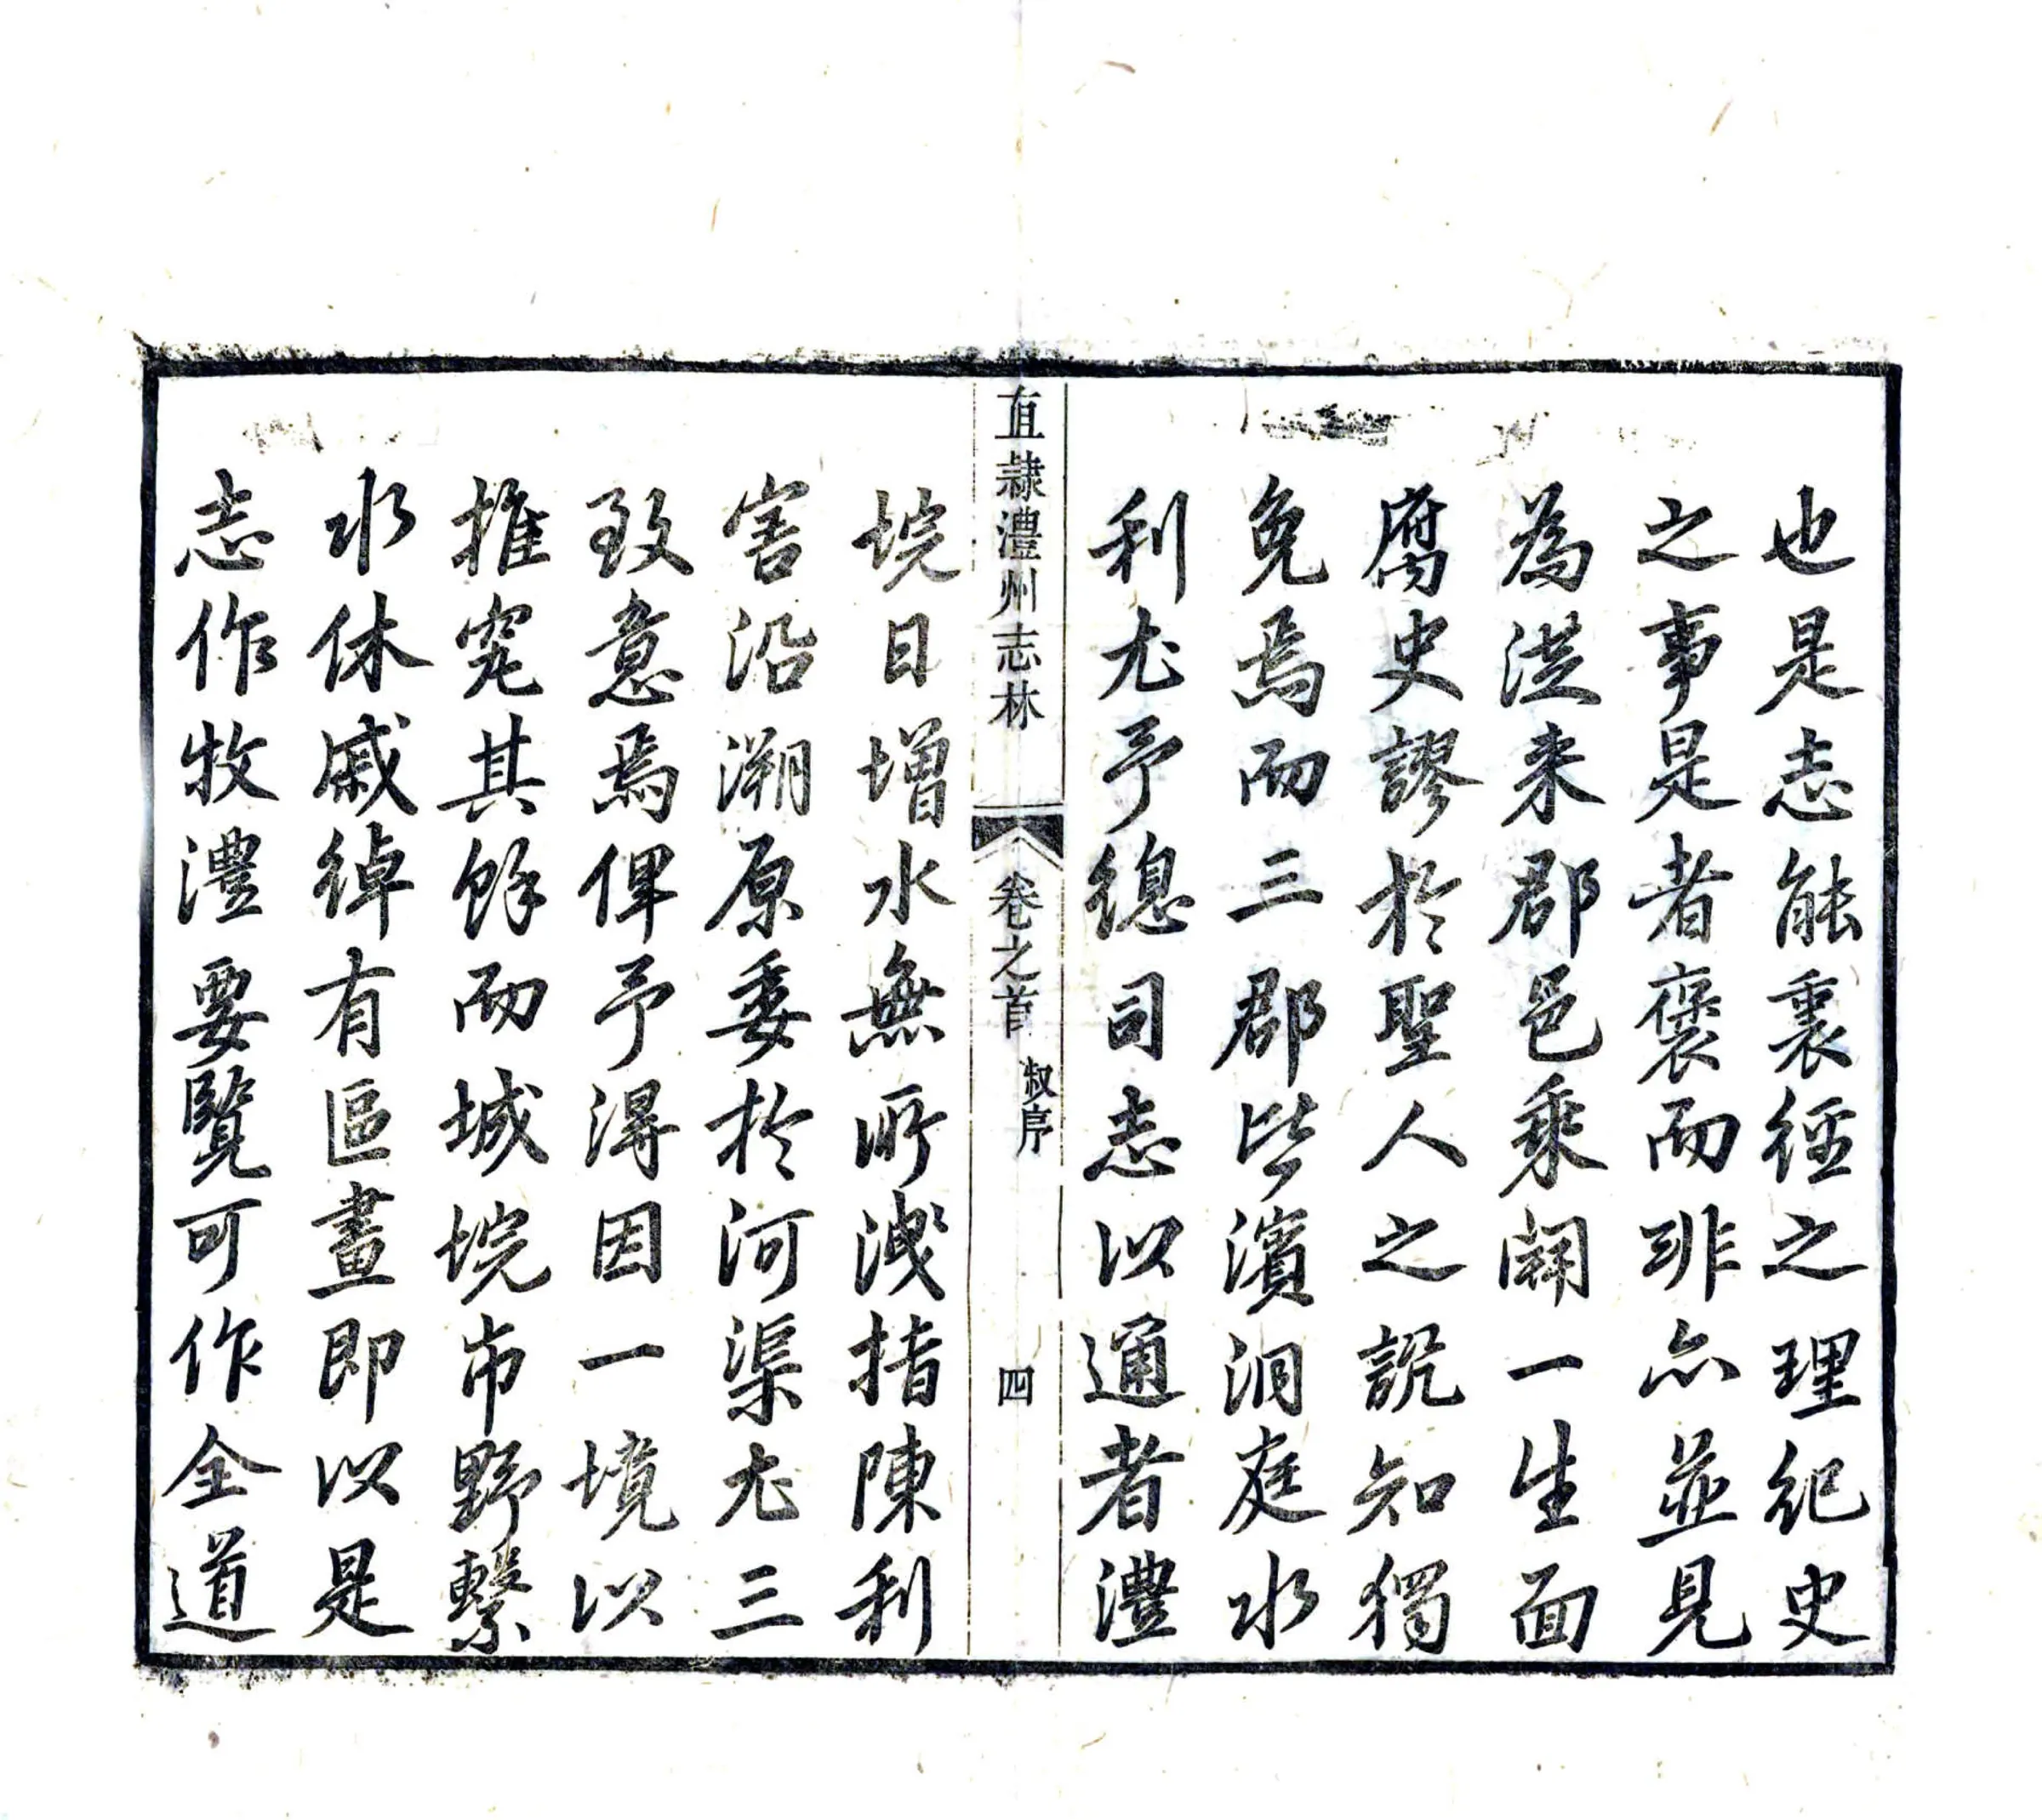 也是志能裏經之理紀史
之事是者褒而非亦並見
為從来郡邑乘闢一生面
腐史謬於聖人之說知獨
免焉而三郡皆濱洞庭水
利尤予總司志以通者澧
直隸澧州志林 卷之首 叙序 四
垸日增水無所洩指陳利
害沿溯原委於河渠尤三
致意焉俾予得因一境以
推究其餘而城垸市野繫
水休戚綽有區畫即以是
志作牧澧要覽可作全道